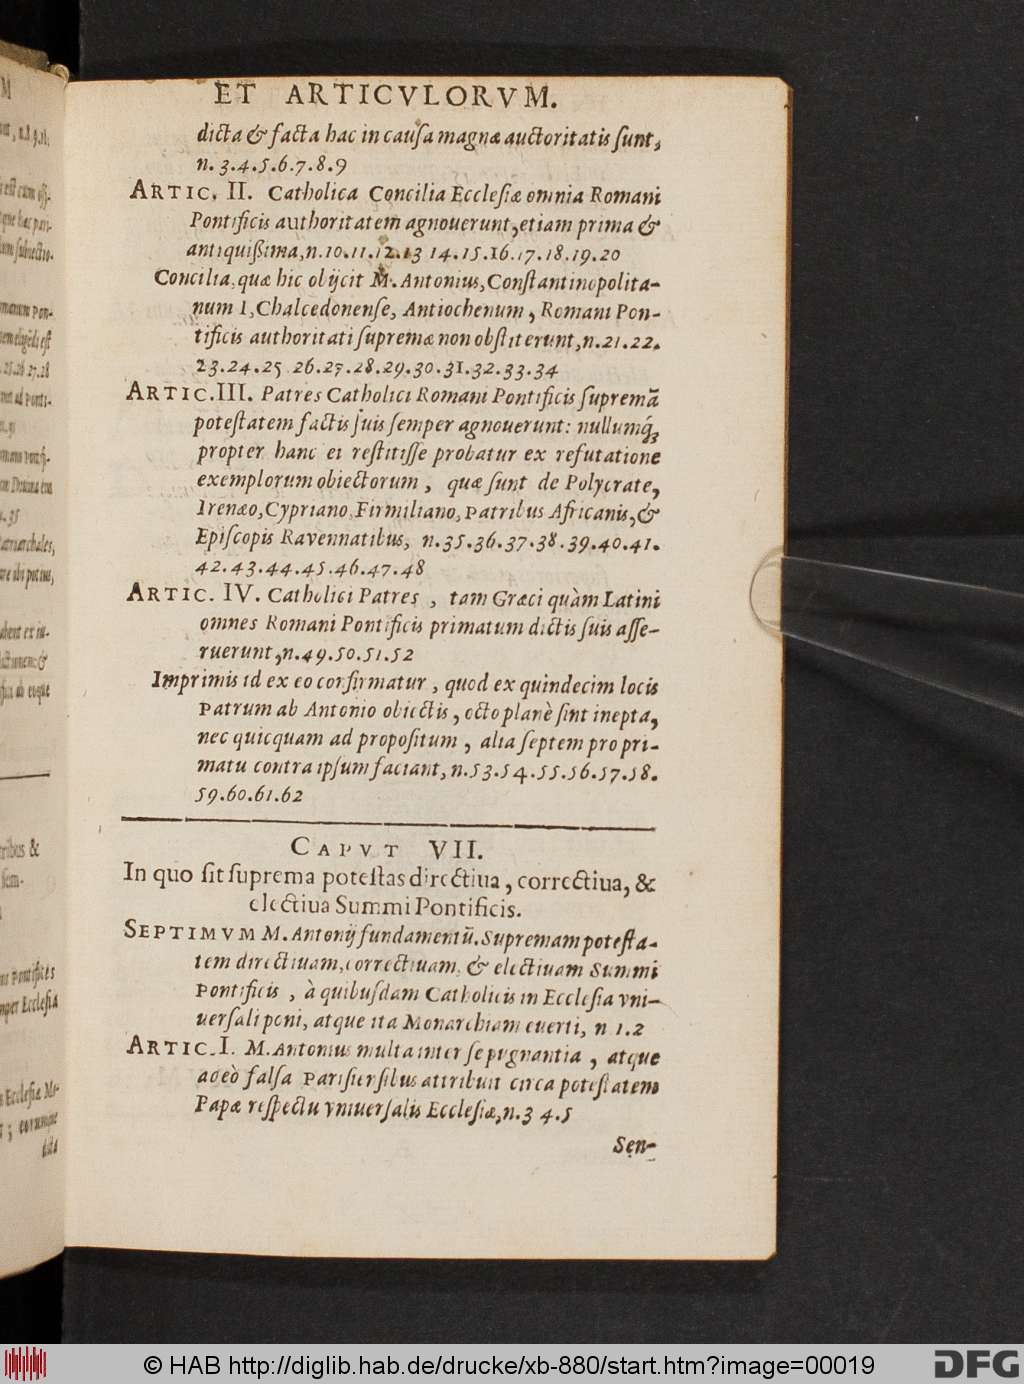 ET ARTICVLORVM.
dicta & facta hac in causa magnæ auctoritatis sunt,
n. 3.4.5.6.7.8.9
ARTIC. II. Catholica Concilia Ecclesiæ omnia Romani
Pontificis authoritatem agnouerunt, etiam prima &
antiquißima, n.10.11.12.13 14.15.16.17.18.19.20
Concilia, quæ hic obijcit M. Antonius, Constantinopolita-
num I, Chalcedonense, Antiochenum, Romani Pon-
tificis authoritati supremæ non obstiterunt, n.21.22.
23.24.25 26.27.28.29.30.31.32.33.34
ARTIC.III. Patres Catholici Romani Pontificis supremã
potestatem factis suis semper agnouerunt: nullumq́;
propter hanc ei restitisse probatur ex refutatione
exemplorum obiectorum, quæ sunt de Polycrate,
Irenæo, Cypriano, Firmiliano, Patribus Africanis, &
Episcopis Ravennatibus, n.35.36.37.38.39.40.41.
42.43.44.45.46.47.48
ARTIC. IV. Catholici Patres, tam Græci quàm Latini
omnes Romani Pontificis primatum dictis suis asse-
ruerunt, n.49.50.51.52
Imprimis id ex eo confirmatur, quod ex quindecim locis
Patrum ab Antonio obiectis, octo planè sint inepta,
nec quicquam ad propositum, alia septem pro pri-
matu contra ipsum faciant, n.53.54.55.56.57.58.
59.60.61.62
CAPVT VII.
In quo sit suprema potestas directiua, correctiua, &
electiua Summi Pontificis.
SEPTIMVM M. Antonij fundamentũ. Supremam potesta-
tem directiuam, correctiuam, & electiuam Summi
Pontificis, à quibusdam Catholicis in Ecclesia vni-
uersali poni, atque ita Monarchiam euerti, n 1.2
ARTIC. I. M. Antonius multa inter se pugnantia, atque
adeò falsa Parisiensibus attribuit circa potestatem
Papæ respectu vniuersalis Ecclesiæ, n.3 4.5
Sen-
© HAB http://diglib.hab.de/drucke/xb-880/start.htm?image=00019
DFG